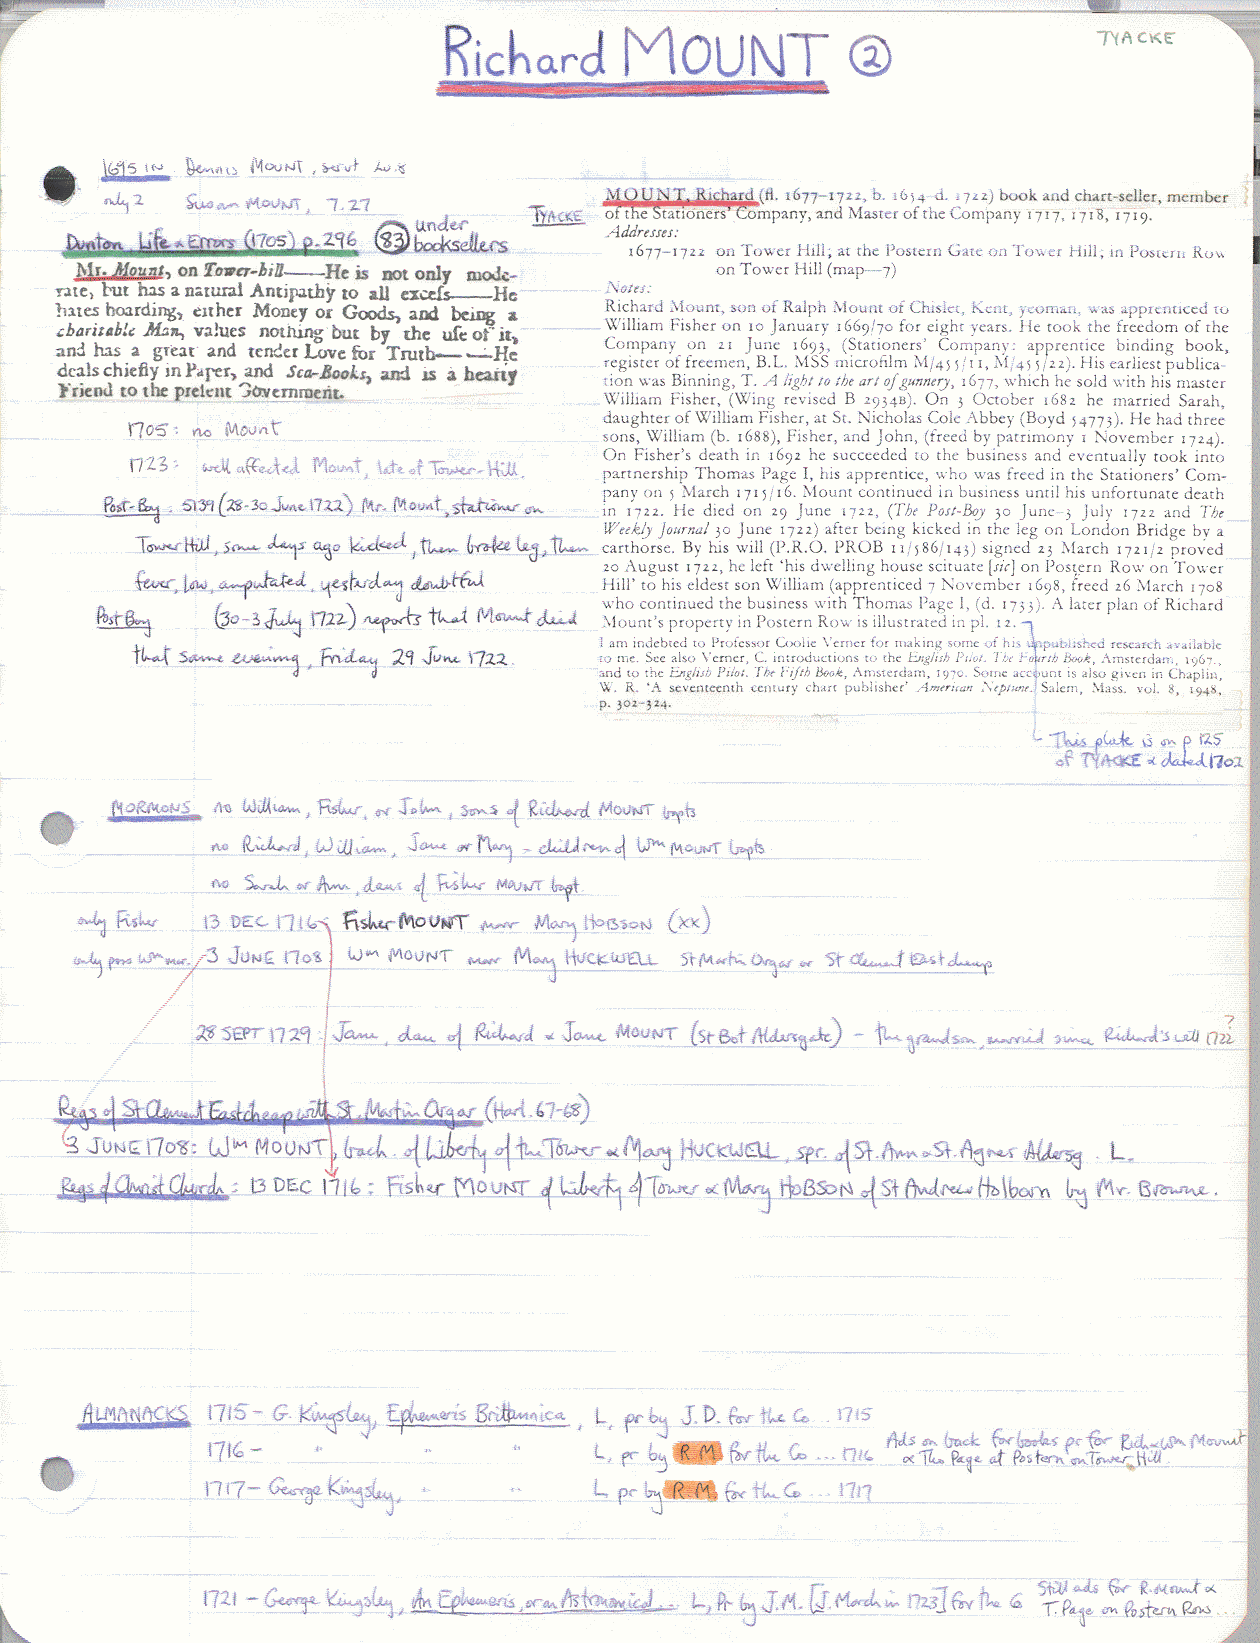 Richard MOUNT ②
TYACKE
1695 IN Dennis MOUNT, servt 20.8
only 2 Susan MOUNT, 7.27
Dunton, Life & Errors (1705) p.296 (83) under
booksellers
Mr. Mount, on Tower-hill——He is not only mode-
rate, but has a natural Antipathy to all excess——He
hates hoarding, either Money or Goods, and being a
charitable Man, values nothing but by the use of it,
and has a great and tender Love for Truth——He
deals chiefly in Paper, and Sea-Books, and is a hearty
Friend to the present Government.
1705: no Mount
1723: well affected Mount, late of Tower-Hill.
Post-Boy: 5139 (28-30 June 1722) Mr. Mount, stationer on
Tower Hill, some days ago kicked, then broke leg, then
fever, low, amputated, yesterday doubtful
Post Boy (30-3 July 1722) reports that Mount died
that same evening, Friday 29 June 1722.
TYACKE
MOUNT, Richard (fl. 1677–1722, b. 1654–d. 1722) book and chart-seller, member
of the Stationers' Company, and Master of the Company 1717, 1718, 1719.
Addresses:
1677–1722 on Tower Hill; at the Postern Gate on Tower Hill; in Postern Row
on Tower Hill (map—7)
Notes:
Richard Mount, son of Ralph Mount of Chislet, Kent, yeoman, was apprenticed to
William Fisher on 10 January 1669/70 for eight years. He took the freedom of the
Company on 21 June 1693, (Stationers' Company: apprentice binding book,
register of freemen, B.L. MSS microfilm M/455/11, M/455/22). His earliest publica-
tion was Binning, T. A light to the art of gunnery, 1677, which he sold with his master
William Fisher, (Wing revised B 2934B). On 3 October 1682 he married Sarah,
daughter of William Fisher, at St. Nicholas Cole Abbey (Boyd 54773). He had three
sons, William (b. 1688), Fisher, and John, (freed by patrimony 1 November 1724).
On Fisher's death in 1692 he succeeded to the business and eventually took into
partnership Thomas Page I, his apprentice, who was freed in the Stationers' Com-
pany on 5 March 1715/16. Mount continued in business until his unfortunate death
in 1722. He died on 29 June 1722, (The Post-Boy 30 June–3 July 1722 and The
Weekly Journal 30 June 1722) after being kicked in the leg on London Bridge by a
carthorse. By his will (P.R.O. PROB 11/586/143) signed 23 March 1721/2 proved
20 August 1722, he left 'his dwelling house scituate [sic] on Postern Row on Tower
Hill' to his eldest son William (apprenticed 7 November 1698, freed 26 March 1708
who continued the business with Thomas Page I, (d. 1733). A later plan of Richard
Mount's property in Postern Row is illustrated in pl. 12.
I am indebted to Professor Coolie Verner for making some of his unpublished research available
to me. See also Verner, C. introductions to the English Pilot. The Fourth Book, Amsterdam, 1967.,
and to the English Pilot. The Fifth Book, Amsterdam, 1970. Some account is also given in Chaplin,
W. R. 'A seventeenth century chart publisher' American Neptune. Salem, Mass. vol. 8, 1948,
p. 302–324.
This plate is on p 125
of TYACKE & dated 1702
MORMONS no William, Fisher, or John, sons of Richard MOUNT bapts
no Richard, William, Jane or Mary - children of Wm MOUNT bapts.
no Sarah or Ann, daus of Fisher MOUNT bapt
only Fisher 13 DEC 1716 Fisher MOUNT marr Mary HOBSON (XX)
only poss Wm mar. 3 JUNE 1708 Wm MOUNT marr Mary HUCKWELL St Martin Orgar or St Clement Eastcheap
28 SEPT 1729: Jane, dau of Richard & Jane MOUNT (St Bot Aldersgate) - the grandson, married since Richard's will 1722 ?
Regs of St Clement Eastcheap with St. Martin Orgar (Harl. 67-68)
3 JUNE 1708: Wm MOUNT, bach. of Liberty of the Tower & Mary HUCKWELL, spr. of St. Ann & St. Agnes Aldersg. L.
Regs of Christ Church: 13 DEC 1716: Fisher MOUNT of Liberty of Tower & Mary HOBSON of St Andrew Holborn by Mr. Browne.
ALMANACKS 1715 - G. Kingsley, Ephemeris Brittannica, L, pr by J.D. for the Co ... 1715
1716 - " " " L, pr by R.M. for the Co ... 1716 Ads on back for books pr for Rich & Wm Mount
& Tho Page at Postern on Tower Hill.
1717 - George Kingsley, " " L pr by R.M. for the Co ... 1717
1721 - George Kingsley, An Ephemeris, or an Astronomical ... L, Pr by J.M. [J. March in 1723] for the Co Still ads for R. Mount &
T. Page on Postern Row ...